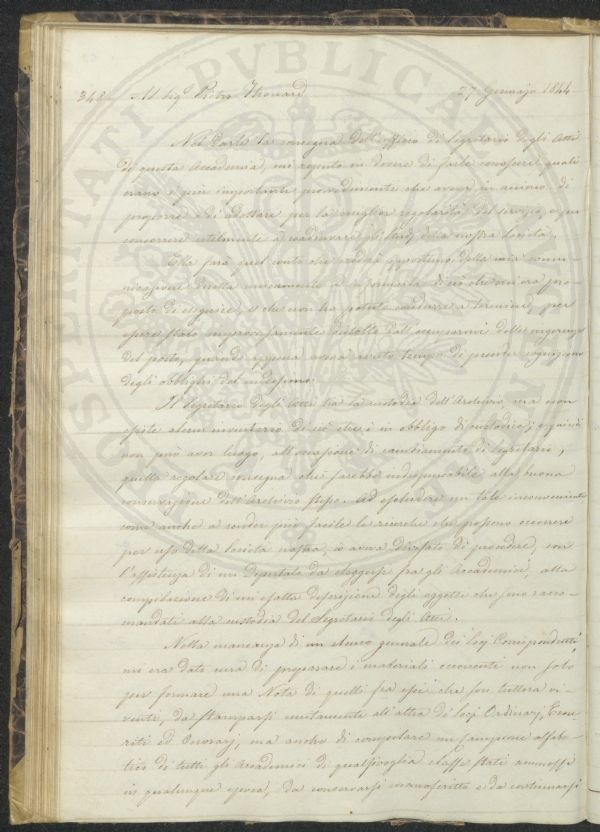 348 Al Sig.r Pietro Thouard 27 Gennajo 1844
Nel darle la consegna dell'uffizio di Segretario degli Atti
di questa Accademia, mi reputo in dovere di farle conoscere quali
erano i più importanti provvedimenti che aveva in animo di
proporre e di adottare per la miglior regolarità del servizio, e per
concorrere utilmente a coadiuvare gli studj della nostra Società.
Ella farà quel conto che crederà opportuno della mia comu-
nicazione diretta unicamente a di ciò che mi era pro-
posto di eseguire, e che non ho potuto condurre a termine, per
essere stato improvvisamente distolto dall'occuparmi delle ingerenze
del posto, quando appena aveva avuto tempo di prender cognizione
degli obblighi del medesimo.
Il Segretario degli Atti ha la custodia dell'Archivio, ma non
esiste alcun inventario di ciò che è in obbligo di custodire; quindi
non può aver luogo, all'occasione di cambiamento di Segretario,
quella regolare consegna che sarebbe indispensabile alla buona
conservazione dell'Archivio stesso. Ad escludere un tale inconveniente
come anche a render più facile le ricerche che possono occorrere
per uso della Società nostra, io aveva divisato di procedere, con
l'assistenza di un Deputato da eleggersi fra gli Accademici, alla
compilazione di un'esatta descrizione degli oggetti che sono racco-
mandati alla custodia del Segretario degli Atti.
Nella mancanza di un elenco generale dei Socj Corrispondenti,
mi era dato cura di preparare i materiali occorrenti non solo
per formare una Nota di quelli fra essi che son tuttora vi-
venti, da stamparsi unitamente all'altra de' Socj Ordinarj, Eme-
riti ed Onorarj, ma anche di compilare un campione alfabe-
tico di tutti gli Accademici di qualsivoglia classe stati ammessi
in qualunque epoca, da conservarsi manoscritto e da continuarsi